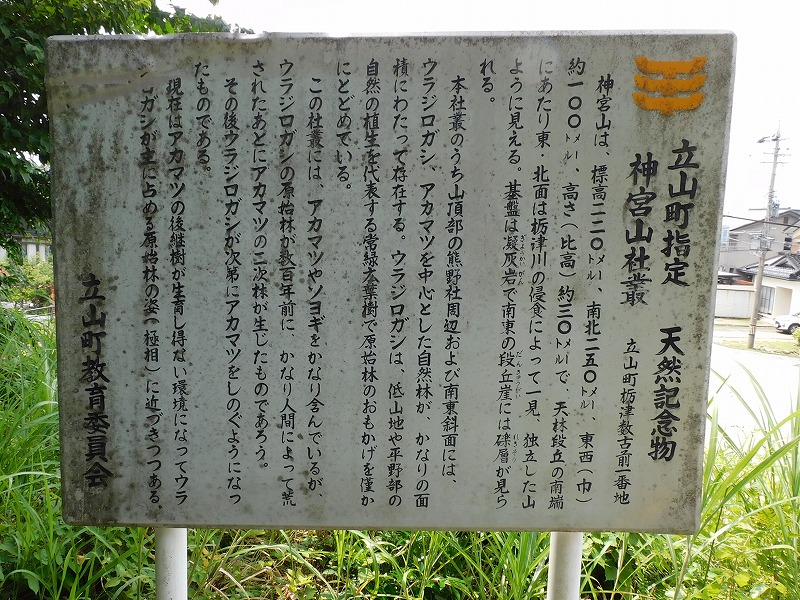 立山町指定　天然記念物
神宮山社叢
立山町栃津数古前一番地
神宮山は、標高一二〇㍍、南北二五〇㍍、東西（巾）
約一〇〇㍍、高さ（比高）約三〇㍍で、天林段丘の南端
にあたり東・北面は栃津川の侵食によって一見、独立した山
ように見える。基盤は凝灰岩で南東の段丘崖には礫層が見ら
れる。
本社叢のうち山頂部の熊野社周辺および南東斜面には、
ウラジロガシ、アカマツを中心とした自然林が、かなりの面
積にわたって存在する。ウラジロガシは、低山地や平野部の
自然の植生を代表する常緑広葉樹で原始林のおもかげを僅か
にとどめている。
この社叢には、アカマツやソヨギをかなり含んでいるが、
ウラジロガシの原始林が数百年前に、かなり人間によって荒
されたあとにアカマツの二次林が生じたものであろう。
その後ウラジロガシが次第にアカマツをしのぐようになっ
たものである。
現在はアカマツの後継樹が生育し得ない環境になってウラ
ロガシが主に占める原始林の姿（極相）に近づきつつある。
立山町教育委員会